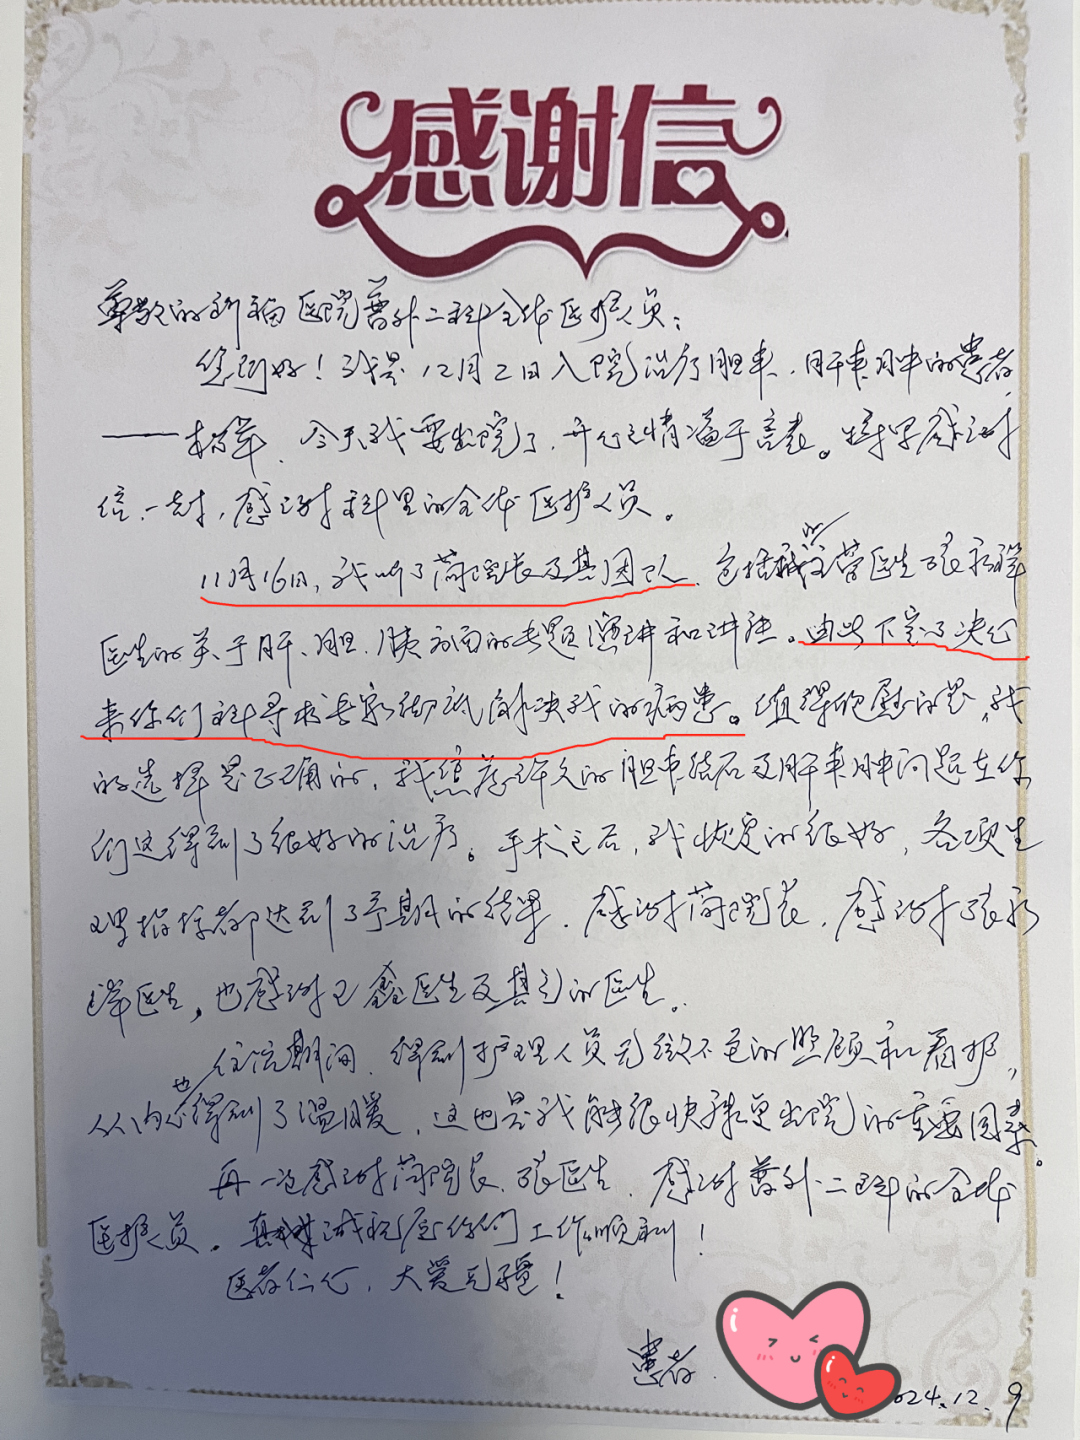 感谢信
尊敬的新福医院普外二科全体医护人员：
您们好！我是12月2日入院治疗胆囊、肝囊肿的患者
——今天我要出院了，开心之情溢于言表。特写感谢
信一封，感谢科里的全体医护人员。
11月16日，我听了蔺院长及其团队、包括我的主管医生张永祥
医生的关于肝、胆、胰方面的专题演讲和讲座。由此下定了决心
来你们科寻求专家彻底解决我的病患。值得欣慰的是，我
的选择是正确的，我焦虑许久的胆囊结石及肝囊肿问题在你
们这得到了很好的治疗。手术之后，我恢复的很好，各项生
理指标都达到了予期的结果，感谢蔺院长，感谢张永
祥医生，也感谢卫鑫医生及其它的医生。
住院期间，得到护理人员无微不至的照顾和看护，
从内心也得到了温暖，这也是我能很快康复出院的重要因素。
再一次感谢蔺院长、张医生，感谢普外二科的全体
医护人员。真诚祝愿你们工作顺利！
医者仁心，大爱无疆！
患者
2024.12.9